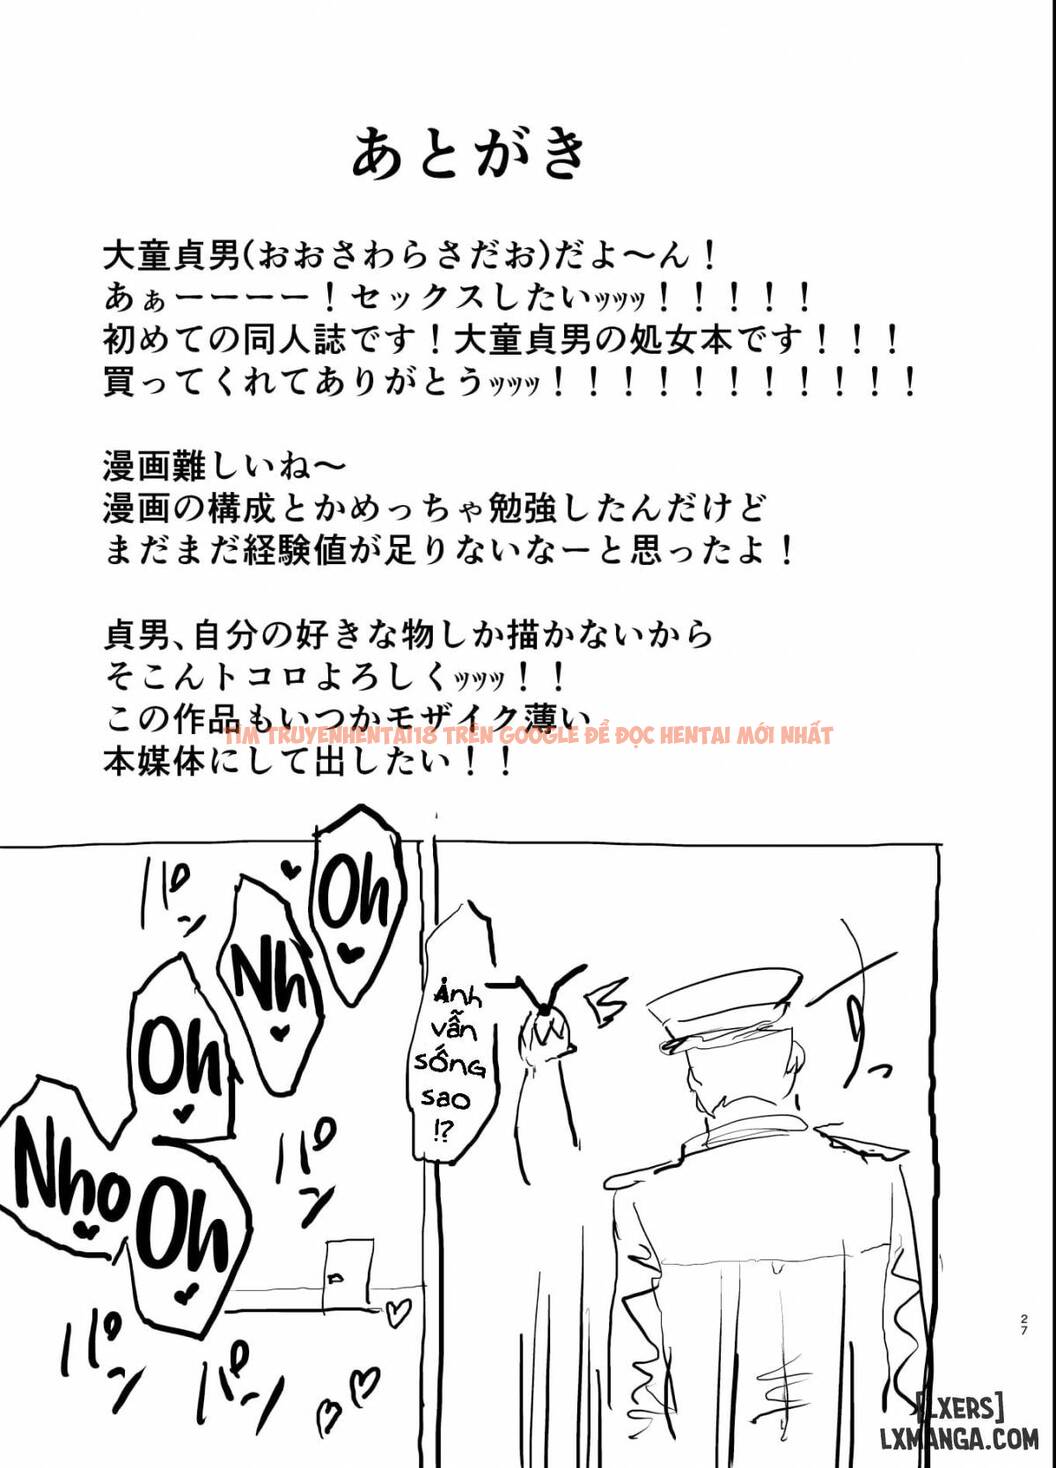 あとがき
大童貞男(おおさわらさだお)だよ～ん！
あぁーーーー！セックスしたいｯｯｯｯ！！！！！
初めての同人誌です！大童貞男の処女本です！！！
買ってくれてありがとうｯｯｯｯ！！！！！！！！！！！
漫画難しいね～
漫画の構成とかめっちゃ勉強したんだけど
まだまだ経験値が足りないなーと思ったよ！
貞男、自分の好きな物しか描かないから
そこんトコロよろしくｯｯｯｯ！！
この作品もいつかモザイク薄い
TÌM TRUYENHENTAI18 TRÊN GOOGLE ĐỂ ĐỌC HENTAI MỚI NHẤT
本媒体にして出したい！！
Oh
Nh
Oh
Nho
Oh
パン
パン
パン
パン
Ảnh
vẫn
sống
sao
!?
27
[LXERS]
LXMANGA.COM